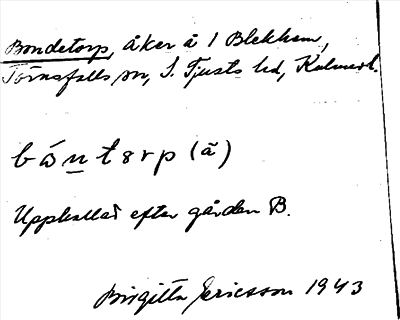 Bondetorp, åker å 1 Blekhem,
Törnsfalls sn, S. Tjusts hd, Kalmar l.
bón̲torp (ā)
Uppkallat efter gården B.
Birgitta Ericsson 1943